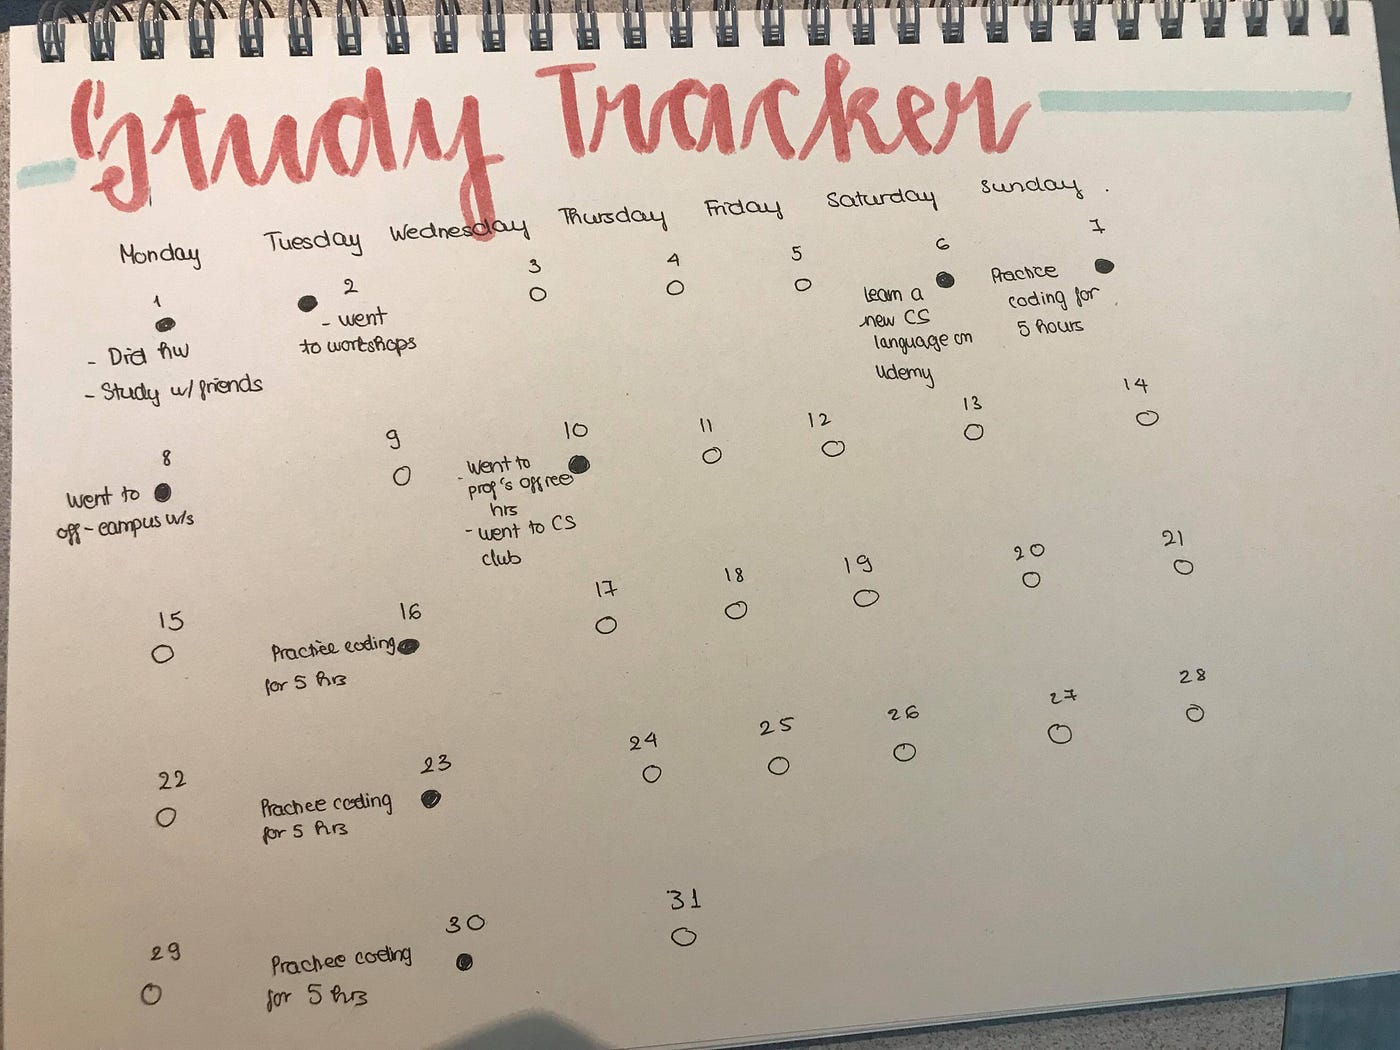 Study Tracker
Monday Tuesday Wednesday Thursday Friday Saturday Sunday
1 2 3 4 5 6 7
- Did hw
- Study w/ friends
- went
to workshops
learn a
new CS
language on
Udemy
Practice
coding for
5 hours
8 9 10 11 12 13 14
Went to
off-campus w/s
- Went to
prof's office
hrs
- went to CS
club
15 16 17 18 19 20 21
Practice coding
for 5 hrs
22 23 24 25 26 27 28
Practice coding
for 5 hrs
29 30 31
Practice coding
for 5 hrs